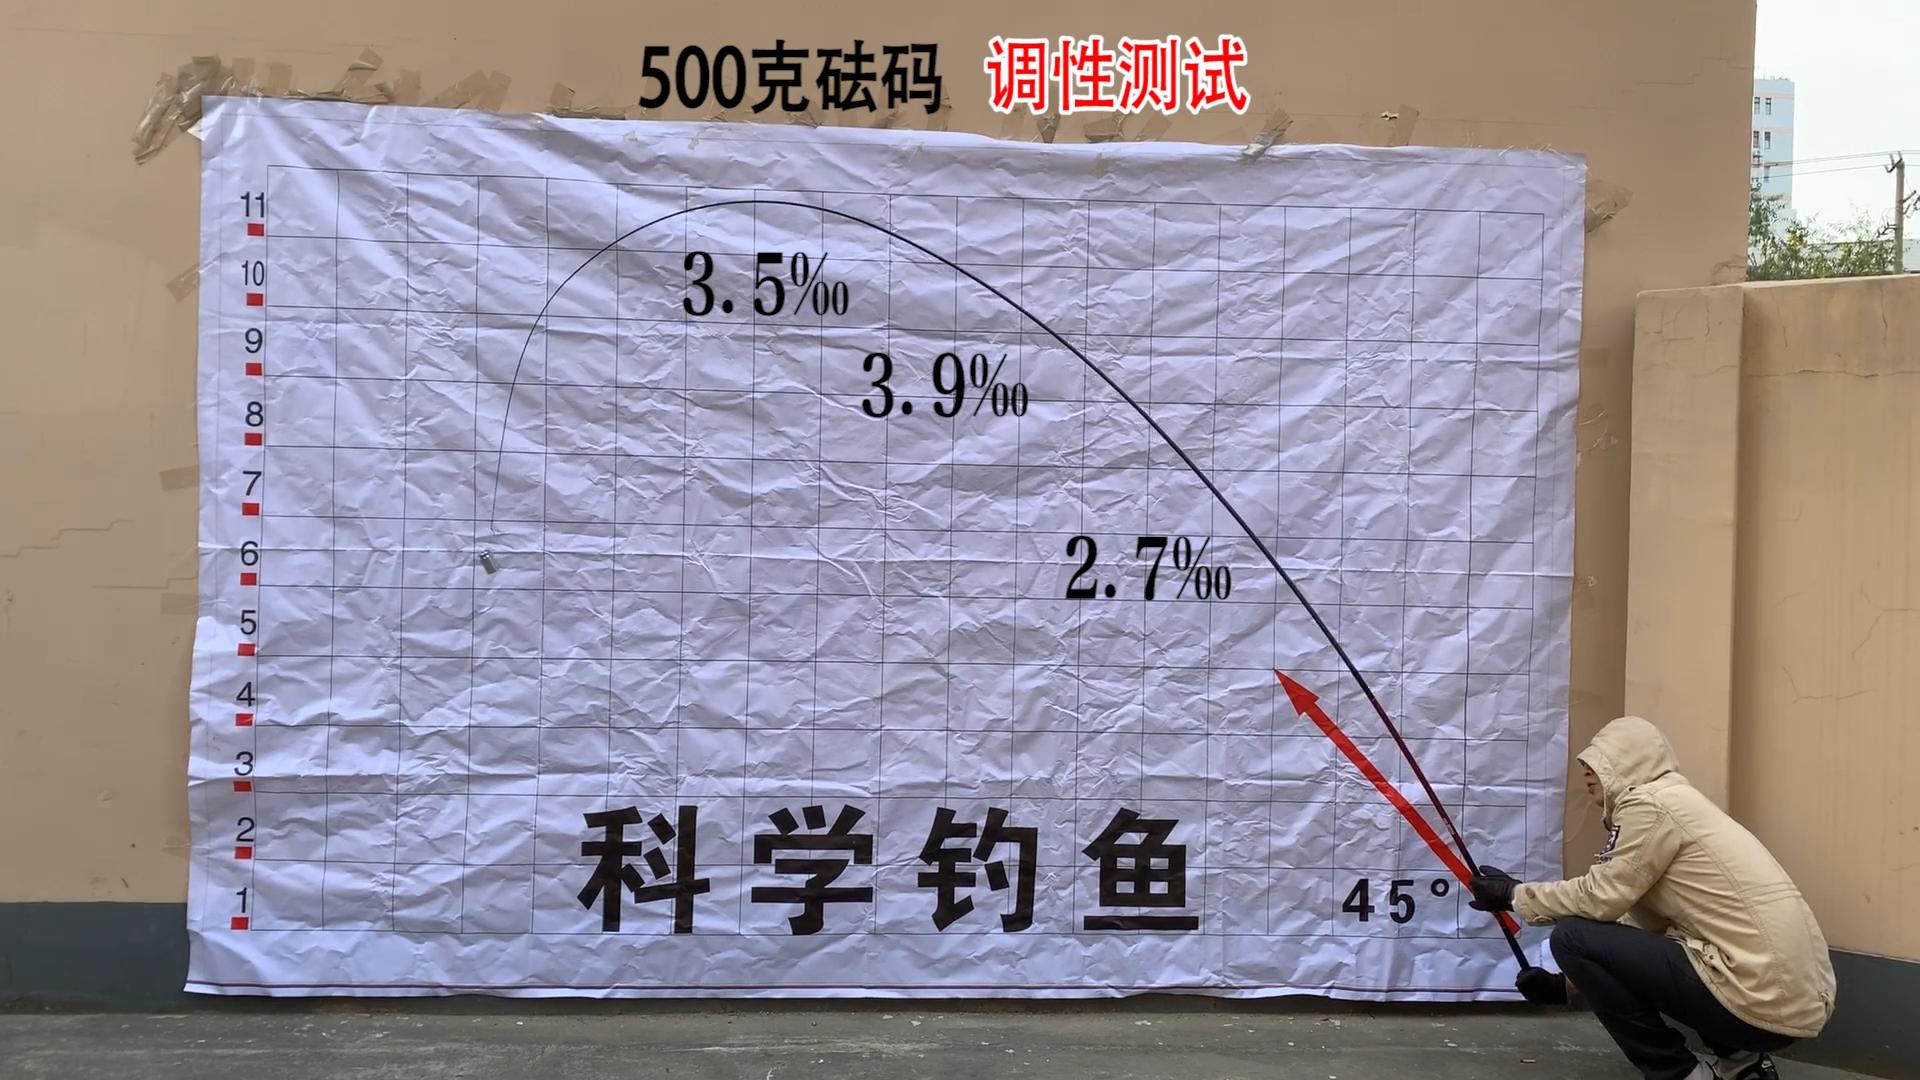 500克砝码 调性测试
11
10
9
8
7
6
5
4
3
2
1
3.5‰
3.9‰
2.7‰
45°
科学钓鱼